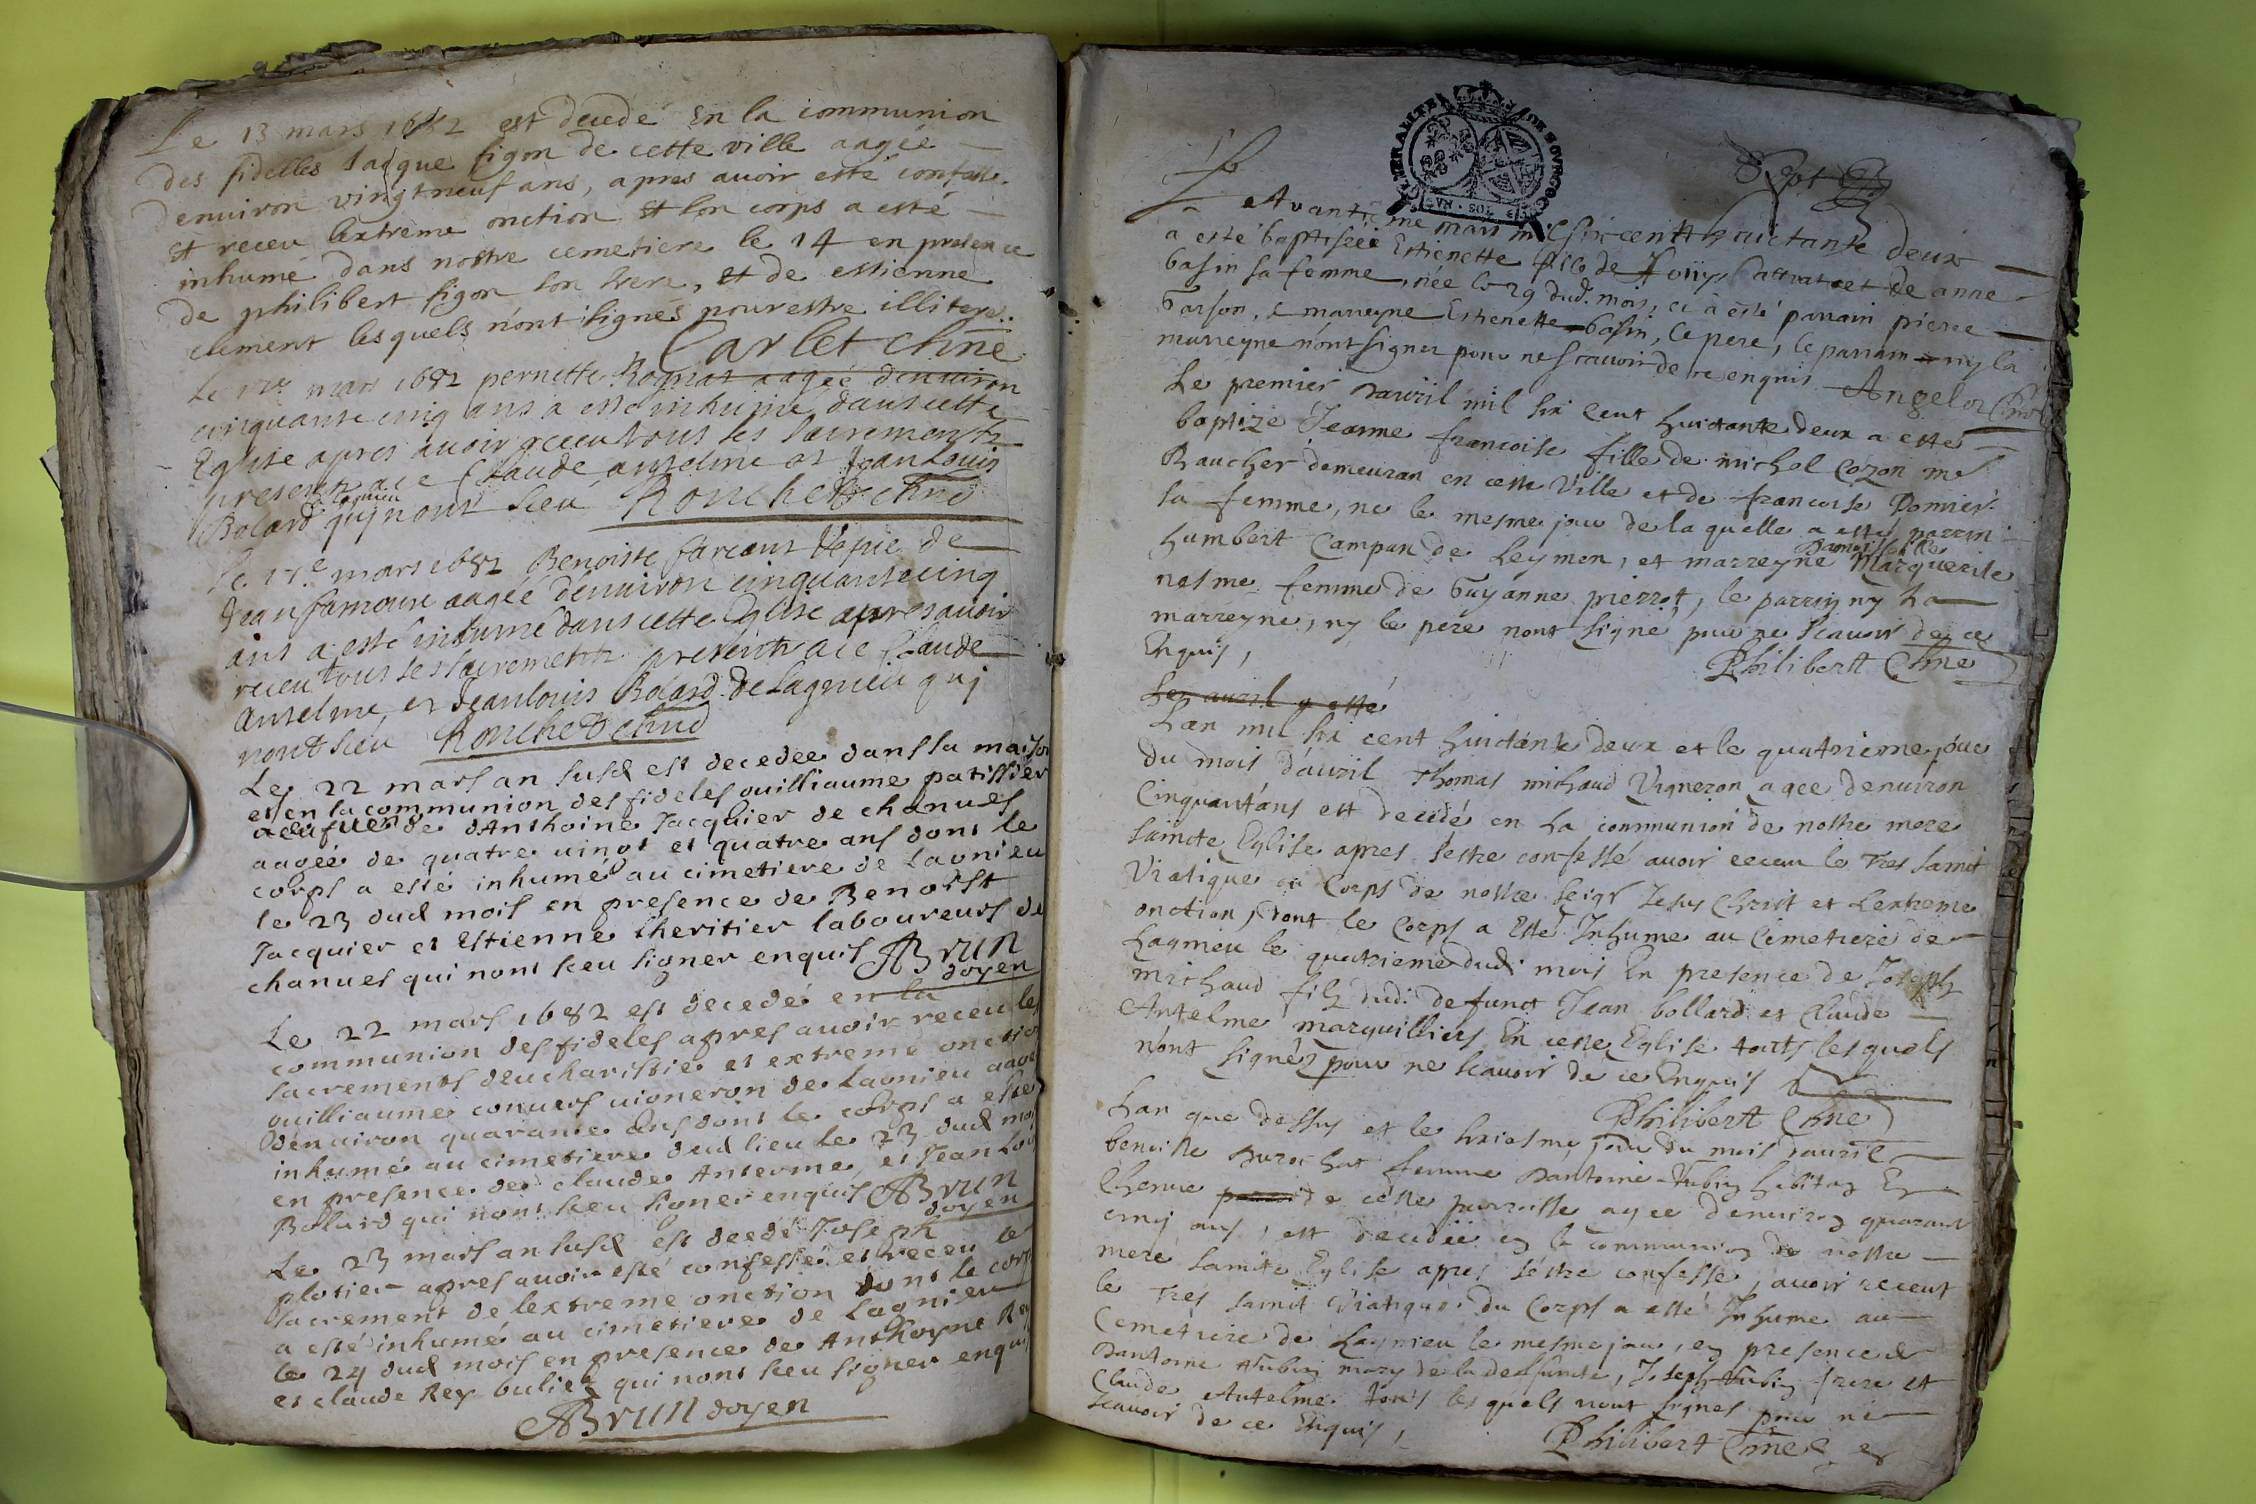 Le 13 mars 1682 est decedé En la communion
des fidelles Jacque figon de cette ville aagée
denuiron vingtneuf ans, apres auoir esté confessé
et receu lextrème onction Et son corps a esté
inhumé dans nostre cemetiere le 14 en presence
de philibert figon son frere, et de estienne
clement lesquels n'ont signés pour estre illiteré.
Carlet chne
Le mars 1682 pernette Rognat aagée denuiron
cinquante cinq ans a esté inhumé dans cette
Eglise apres auoir receu tous les sacrements
presents a ce Claude antelme et Jean Louis
de lagnieu
Bolard qui n'ont sceu Ronchet chne
le 17e mars 1682 Benoiste farcout de
Jean aagée denuiron cinquante cinq
ans a esté inhumé dans cette Eglise apres auoir
receu tous les sacrements presents a ce Claude
antelme, et Jean louis Bolard de lagnieu qui
n'ont sceu Ronchet chne
Le 22 mars an susd est decedée dans sa maison
et en la communion des fideles ouilliaume patissier
uefue de d'Anthoine Jacquier de chanues
aagée de quatre uingt et quatre ans dont le
corps a esté inhumé au cimetiere de Lagnieu
le 23 dud mois en presence de Benoist
Jacquier et Estienne lheritier laboureurs de
chanues qui nont sceu signer enquis ABrun
doyen
Le 22 mars 1682 est decedé en la
communion des fideles apres auoir receu les
sacrements deucharistie et extreme onction
ouilliaume conuers uigneron de Lagnieu aagé
denuiron quarante ans dont le corps a esté
inhumé au cimetiere dud lieu le 23 dud mois
en presence de claude Anterme, et Jean Louis
Bolard qui nont sceu signer enquis ABrun
doyen
Le 23 mars an susd est decedé Joseph
plotier apres auoir esté confessé et receu le
sacrement de lextreme onction dont le corps
a esté inhumé au cimetiere de Lagnieu
le 24 dud mois en presence de Anthoyne Rey
et claude Rey buliet qui nont sceu signer enquis
ABrun doyen
GENERALITE DE BOVRGOGNE
Sept
Le trantième mars mil six cent huictante deux
a esté baptisée Estienette fille de et de anne
basin sa femme, née le 29 dud. mois, et a esté parrain pierre
Garson, & marreyne Estienette basin, le pere, le parrain ny la
marreyne n'ont signer pour ne scauoir de ce enquis Angelot Chne
Le premier dauril mil six cent huictante deux a esté
baptizé Jeanne francoise fille de michel Cozon me
Raucher demeuran en cette Ville et de francoise Domier
sa femme, ne le mesme jour de la quelle a esté parrin
humbert Campan de Leymen, et marreyne Damoiselle Marguerite
nesme femme de Guyanne pierrot, le parrin ny la
marreyne, ny le père nont signé pour ne scauoir de ce
Enquis,
Philibert Chne
Le 2 auril a esté
Lan mil six cent huictante deux et le quatrieme jour
du mois d'auril Thomas michaud Vigneron agee denuiron
Cinquant'ans est decidé en la communion de nostre mere
saincte Eglise apres sestre confessé auoir receu le tres sainct
Viatique du Corps de nostre seigr Jesus Christ et Lextreme
onction, dont le Corps a Esté Inhume au Cimetiere de
Lagnieu le quatrieme dud. mois En presence de Joseph
michaud filz dud. defunct Jean bollard et Claude
Antelme marguilliers En cette Eglise touts lesquels
n'ont signéz pour ne scauoir de ce Enquis
Philibert Chne
Lan que dessus et le huictesme jour du mois dauril
benoiste Durochat femme Dantoine Aubin habitan En
Chenue de cette parroisse agee denuiron quarant
cinq ans, est decidée en la communion de nostre
mere saincte Eglise apres s'estre confessé, auoir receut
le tres sainct Viatique du Corps a esté Inhume au
Cemetiere de Lagnieu le mesme jour, en presence de
Dantoine Aubin mary de la deffuncte, Joseph Aubin frere et
Claude Antelme touts les quels nont signes pour ne
scauoir de ce Enquis,
Philibert Chne